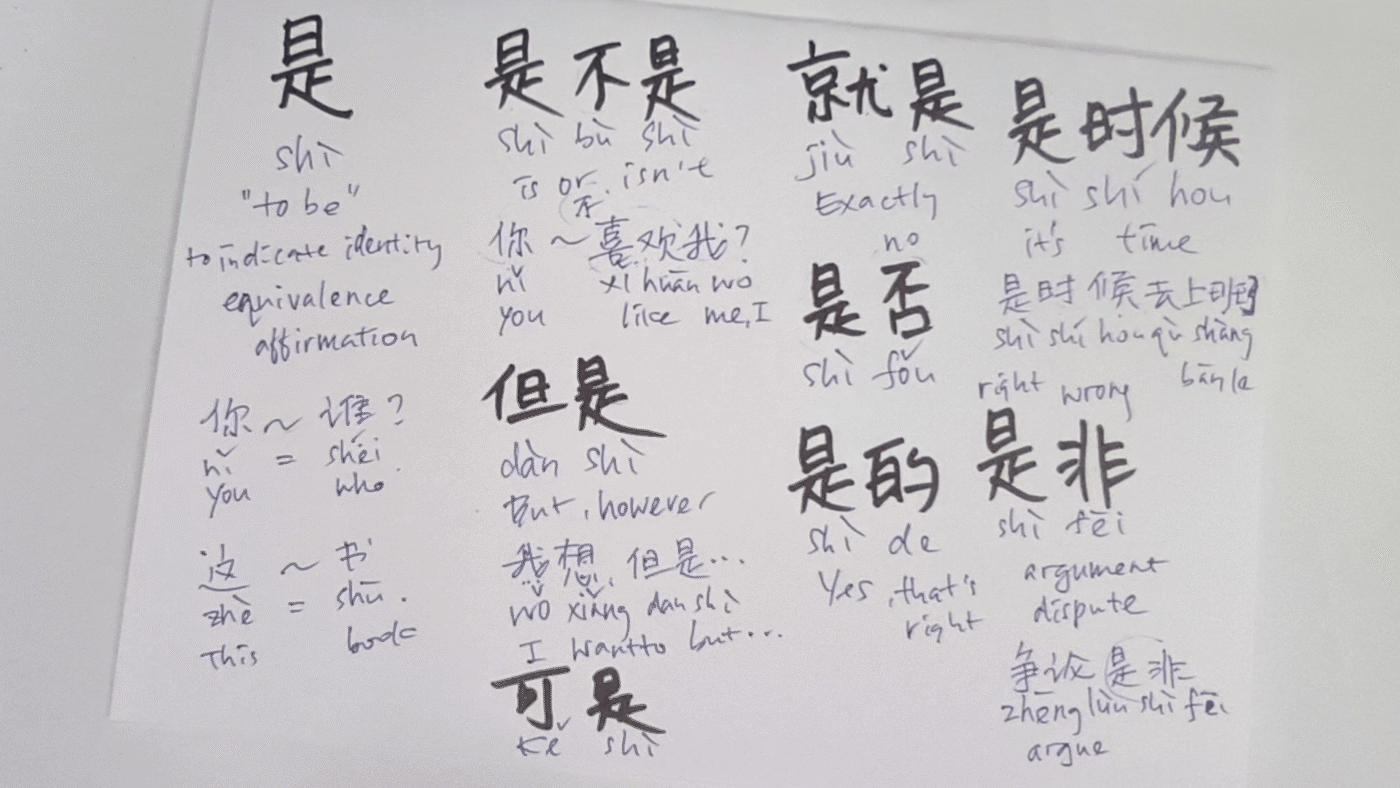 是
shì
"to be"
to indicate identity
equivalence
affirmation
你 ~ 谁?
nǐ = shéi
you who
这 ~ 书
zhè = shū.
This book
是不是
shì bù shì
is or. isn't
不
你 ~ 喜欢我?
nǐ xǐ huān wo
you like me, I
但是
dàn shì
But, however
我想, 但是...
wǒ xiǎng dan shì
I want to but...
可是
kě shì
就是
jiù shì
Exactly
no
是否
shì fǒu
是的
shì de
Yes, that's
right
是时候
shì shí hou
it's time
是时候去上班了
shì shí hou qù shàng
bān le
right wrong
是非
shì fēi
argument
dispute
争论是非
zhēng lùn shì fēi
argue